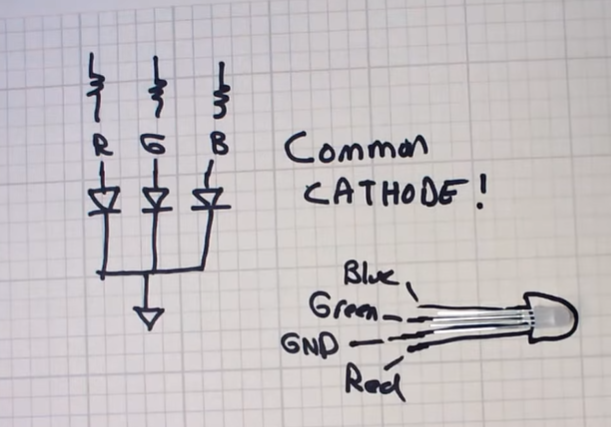 R G B
Common
CATHODE!
Blue
Green
GND
Red